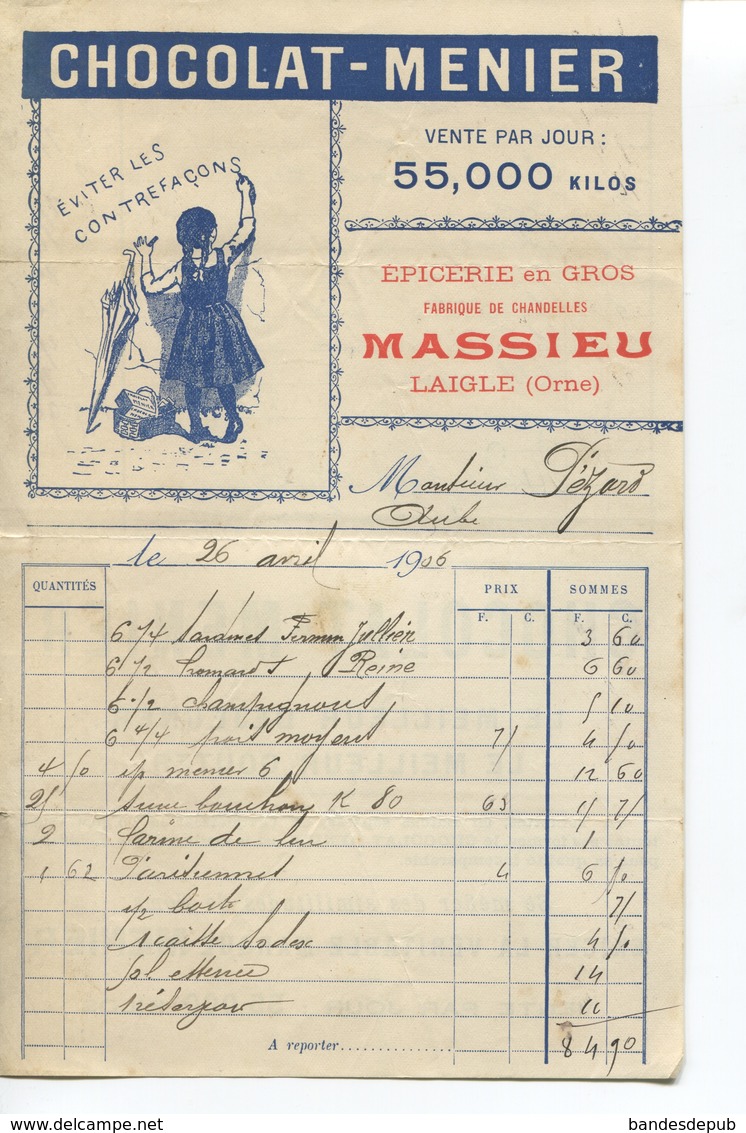 CHOCOLAT-MENIER
ÉVITER LES
CONTREFAÇONS
VENTE PAR JOUR :
55,000 KILOS
ÉPICERIE en GROS
FABRIQUE DE CHANDELLES
MASSIEU
LAIGLE (Orne)
Monsieur Pézard
Aube
le 26 avril 1906
QUANTITÉS PRIX SOMMES
F. C. F. C.
6 1/4 Jullien 3 60
6 1/2 homard Reine 6 60
6 1/2 champignons 5 10
6 4/4 pois moyens 75 4 50
4 50 menier 6 12 60
25 Sucre bouchon K 80 63 15 75
2 farine de 1
1 62 Parisiennes 4 6 50
1/2 75
1 caisse 4 50
14
11
A reporter 84 90
bandesdepub